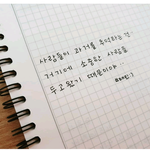 사람들이 과거를 추억하는 건
거기에 소중한 사람을
두고왔기 때문이야..